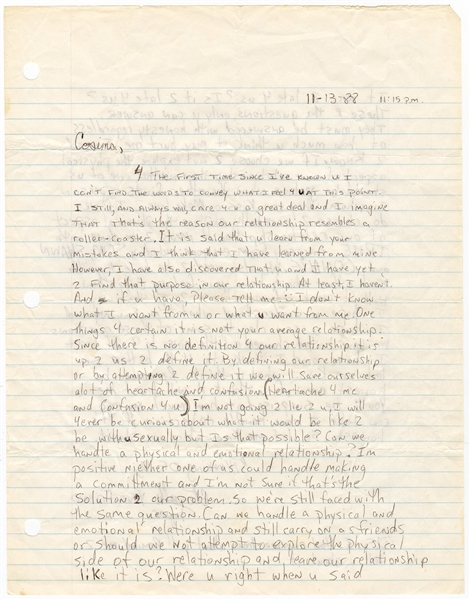 11-13-88 11:15 P.M.
Cosima,
4 The first time since I've known u I
can't find the words to convey what I feel 4 u at this point.
I still, and always will, care 4 u a great deal and I imagine
that that's the reason our relationship resembles a
roller-coaster. It is said that u learn from your
mistakes and I think that I have learned from mine.
However, I have also discovered that u and I have yet
2 find that purpose in our relationship. At least, I haven't.
And if u have, please tell me I don't know
what I want from u or what u want from me. One
things 4 certain it is not your average relationship.
Since there is no definition 4 our relationship it is
up 2 us 2 define it. By defining our relationship
or by attempting 2 define it we will save ourselves
alot of heartache and confusion (Heartache 4 me
and Confusion 4 u) I'm not going 2 lie 2 u, I will
4ever be curious about what it would be like 2
be with u sexually but Is that possible? Can we
handle a physical and emotional relationship? I'm
positive niether one of us could handle making
a committment and I'm not sure if that's the
solution 2 our problem. So we're still faced with
the same question. Can we handle a physical and
emotional relationship and still carry on as friends
or should we not attempt to explore the physical
side of our relationship and leave our relationship
like it is? Were u right when u said